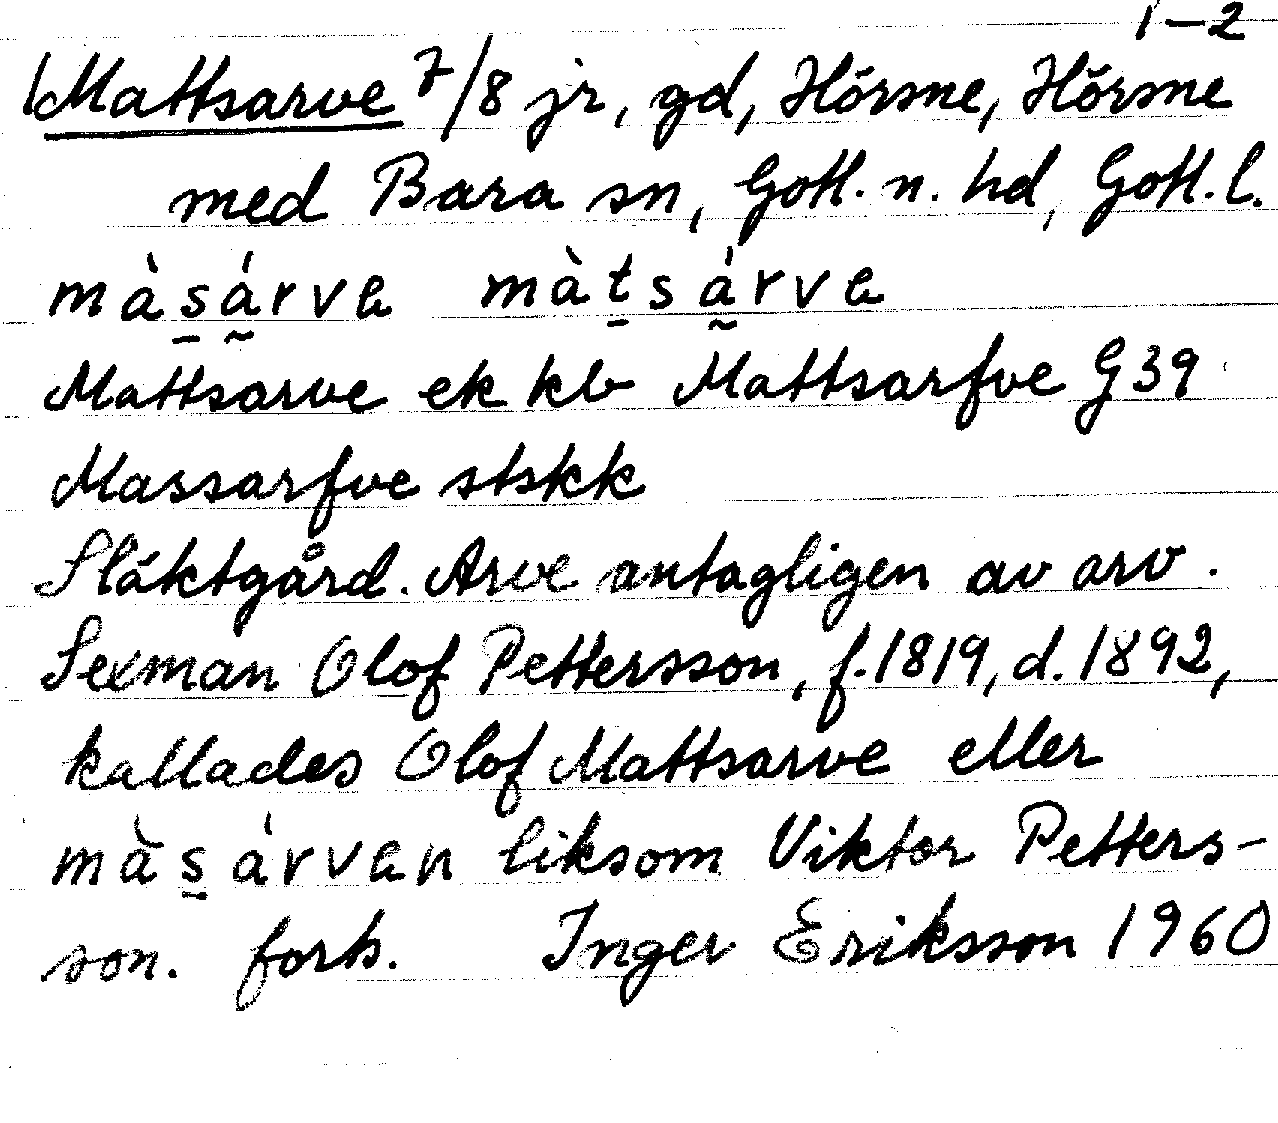 1–2
Mattsarve 7/8 jr, gd, Hörsne, Hörsne
med Bara sn, Gotl. n. hd, Gotl. l.
màsárva màtsárva
Mattsarve ek kb Mattsarfve G39
Massarfve stskk
Släktgård. Arve antagligen av arv.
Sexman Olof Pettersson, f. 1819, d. 1892,
kallades Olof Mattsarve eller
màsárvan liksom Viktor Petters-
son. forts. Inger Eriksson 1960